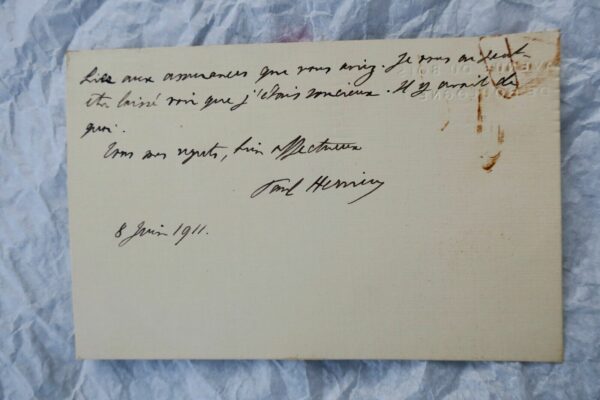 aux assurances que vous aviez. Je vous ai peut
être laissé voir que j'étais soucieux. Il y avait de
quoi.
Tous mes regrets, bien affectueux
Paul Hervieu
8 Juin 1911.
DU BOIS
DE BOULOGNE